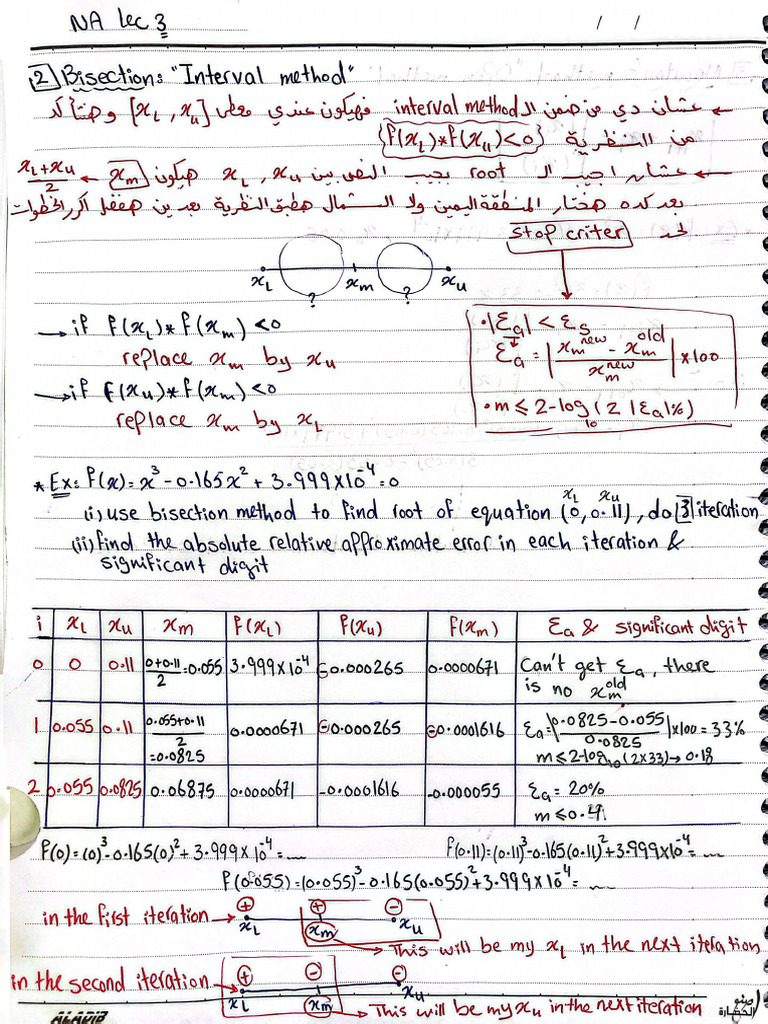 NA Lec 3
/ /
2 Bisection: "Interval method"
← عشان دي من ضمن الـ interval method فهيكون عندي معطى [xL , xu] وهتأكد
من النظرية {f(xL)*f(xu)<0}
← عشان اجيب الـ root بجيب النص بين xL , xu هيكون xm ← (xL+xu)/2
بعد كده هختار المنطقة اليمين ولا الشمال هطبق النظرية بعدين هفضل اكرر الخطوات
لحد stop criter
xL xm xu
? ?
→ if f(xL)*f(xm) <0
replace xm by xu
→ if f(xu)*f(xm) <0
replace xm by xL
• |εa| < εs
εa = |(xm^new - xm^old)/xm^new| x100
• m ≤ 2-log10(2|εa|%)
* Ex: f(x)= x³-0.165x²+3.999x10⁻⁴=0
(i) use bisection method to find root of equation (0, 0.11), do 3 iteration
xL xu
(ii) find the absolute relative approximate error in each iteration &
significant digit
i xL xu xm f(xL) f(xu) f(xm) εa & significant digit
0 0 0.11 (0+0.11)/2=0.055 3.999x10⁻⁴ -0.000265 0.0000671 Can't get εa, there
is no xm^old
1 0.055 0.11 (0.055+0.11)/2 =0.0825 0.0000671 -0.000265 -0.0001616 εa=|(0.0825-0.055)/0.0825|x100=33%
m≤2-log10(2x33)→0.18
2 0.055 0.0825 0.06875 0.0000671 -0.0001616 -0.000055 εa= 20%
m≤0.4
f(0)=(0)³-0.165(0)²+3.999x10⁻⁴=.... f(0.11)=(0.11)³-0.165(0.11)²+3.999x10⁻⁴=....
f(0.055)=(0.055)³-0.165(0.055)²+3.999x10⁻⁴=....
in the first iteration → + + -
xL xm xu
→ This will be my xL in the next iteration
in the second iteration → + - -
xL xm xu
→ This will be my xu in the next iteration
ALADIB
صنع الحضارة